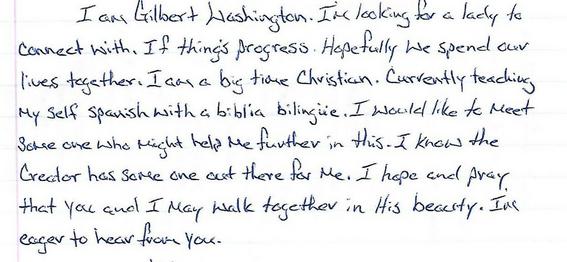 I am Gilbert Washington. I'm looking for a lady to
connect with. If thing's progress. Hopefully we spend our
lives together. I am a big time Christian. Currently teaching
my self spanish with a biblia bilingüe. I would like to meet
some one who might help me further in this. I know the
Creator has some one out there for me. I hope and pray
that you and I may walk together in His beauty. I'm
eager to hear from you.